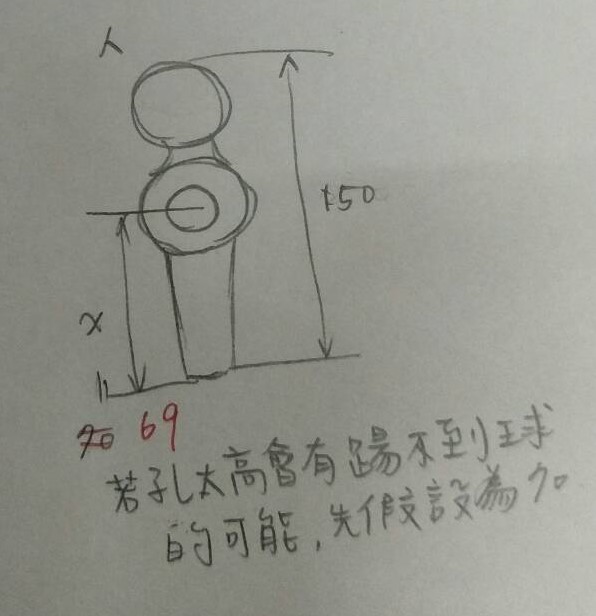 人
150
x
=
70 69
若孔太高會有踢不到球
的可能,先假設為70